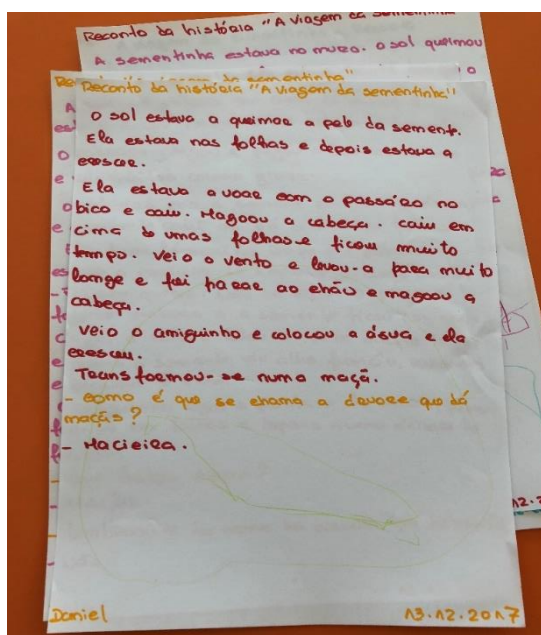 Reconto da história "A Viagem da sementinha"
A sementinha estava no muro. o sol queimou
Reconto da história "A viagem da sementinha"
O sol estava a queimar a pele da semente.
Ela estava nas folhas e depois estava a
crescer.
Ela estava a voar com o passáro no
bico e caiu. Magoou a cabeça. caiu em
cima de umas folhas e ficou muito
tempo. Veio o vento e levou-a para muito
longe e foi parar ao chão e magoou a
cabeça.
Veio o amiguinho e colocou a água e ela
cresceu.
Transformou-se numa maçã.
- Como é que se chama a árvore que dá
maçãs?
- Macieira.
Daniel
13.12.2017